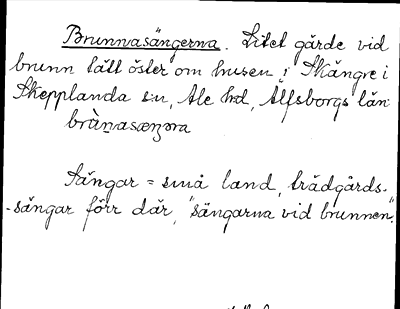 Brunnasängerna. Litet gärde vid
brunn tätt öster om husen i Skångre i
Skepplanda sn, Ale hd, Älfsborgs län
brùnasæŋəra
Sängar = små land, trädgårds-
-sängar förr där, "sängarna vid brunnen".